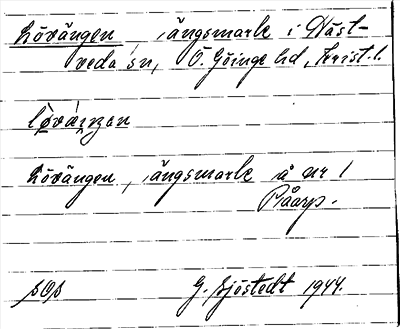 Lövängen, ängsmark i Näst-
veda sn, Ö. Göinge hd, Krist. l.
Lövängen, ängsmark å nr 1
Råarp.
G. Sjöstedt 1944.